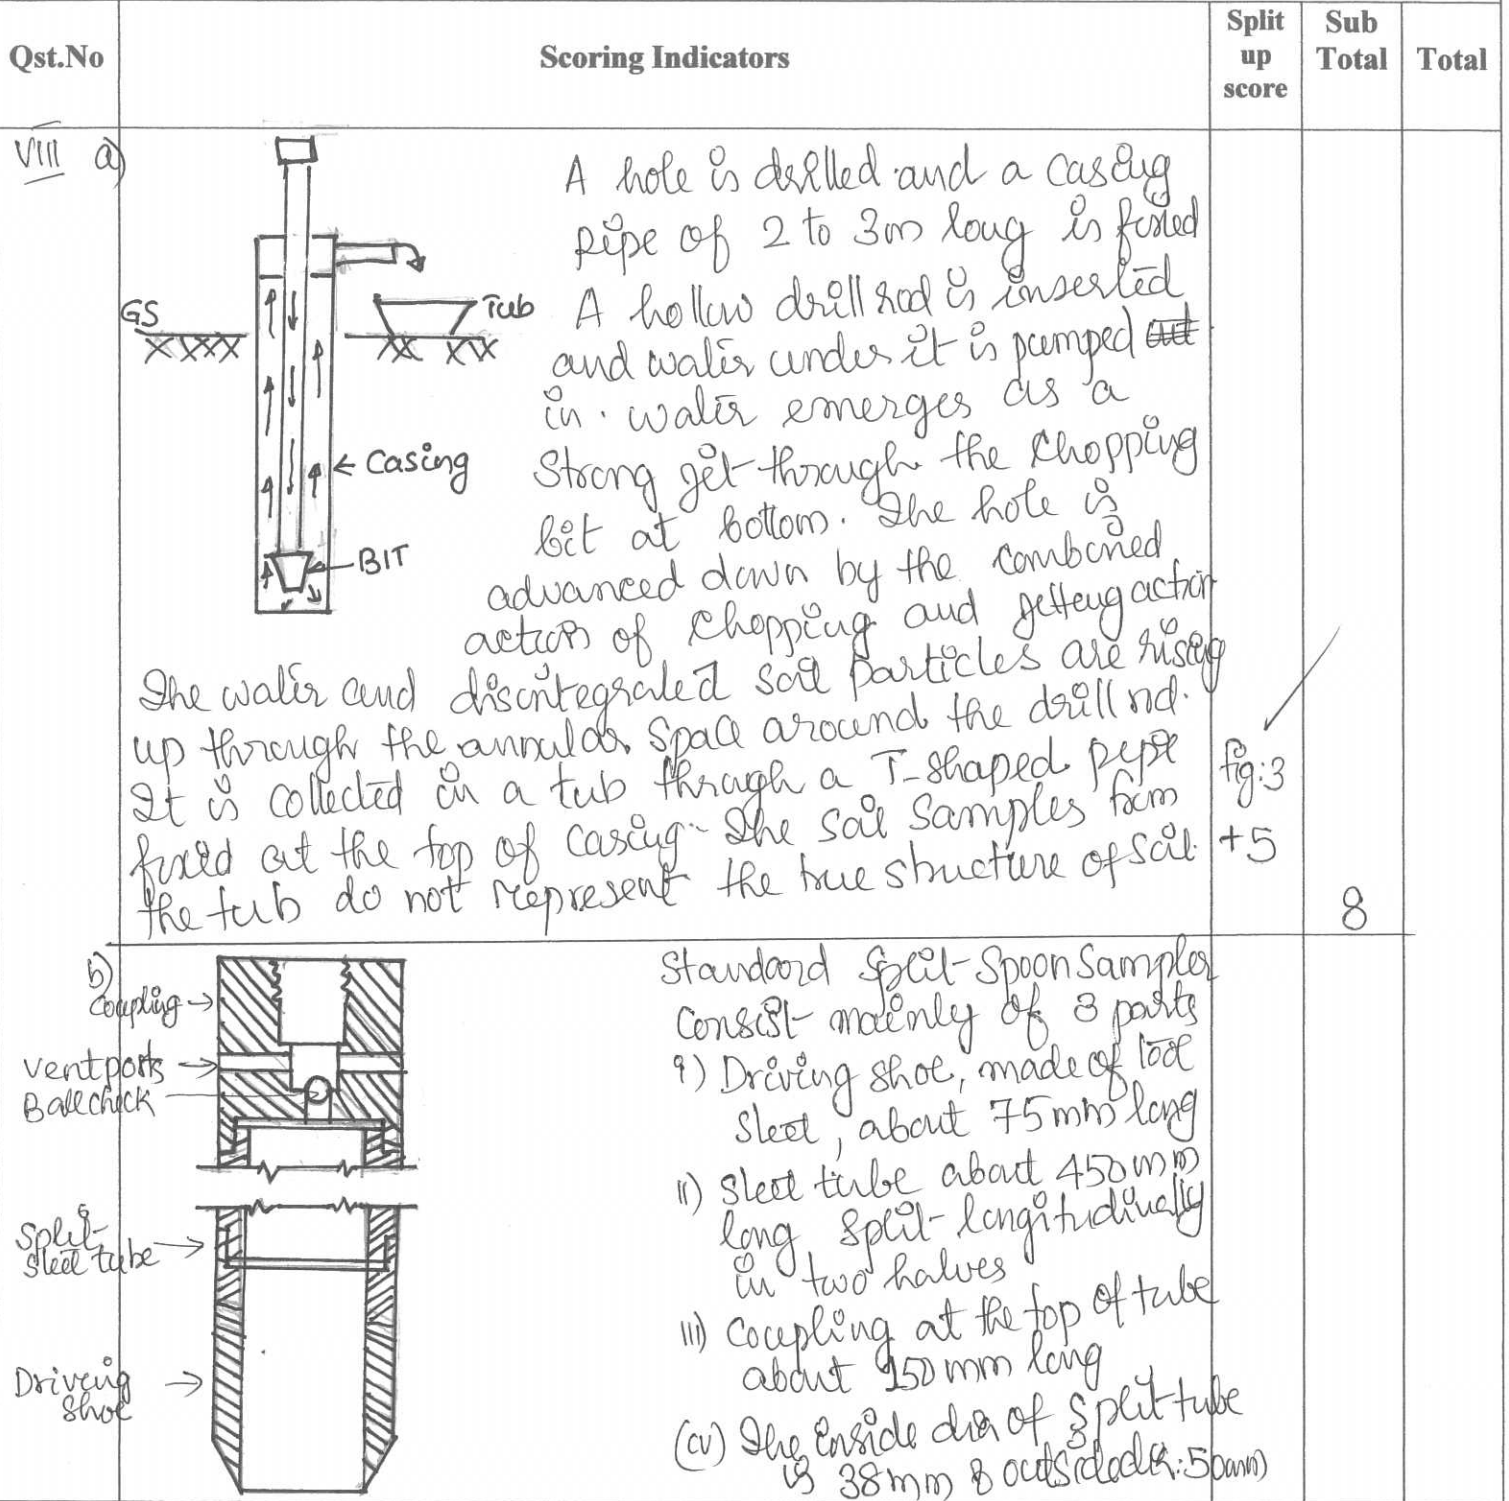 Qst.No Scoring Indicators Split up score Sub Total Total
VIII a)
A hole is drilled and a casing
pipe of 2 to 3m long is fixed
A hollow drill rod is inserted
and water under it is pumped
in. water emerges as a
Strong jet through the chopping
bit at bottom. The hole is
advanced down by the combined
action of chopping and jetting action
The water and disintegrated soil particles are rising
up through the annular space around the drill rod.
It is collected in a tub through a T-shaped pipe
fixed at the top of casing. The soil samples from
the tub do not represent the true structure of soil.
GS
Tub
Casing
BIT
fig:3
+5
8
b)
Coupling
vent ports
Ball check
Split-
Steel tube
Driving
Shoe
Standard Split-Spoon Sampler
Consist mainly of 3 parts
i) Driving shoe, made of tool
steel, about 75mm long
ii) Steel tube about 450mm
long split-longitudinally
in two halves
iii) Coupling at the top of tube
about 150mm long
(iv) The inside dia of split-tube
is 38mm & outside dia: 50mm)